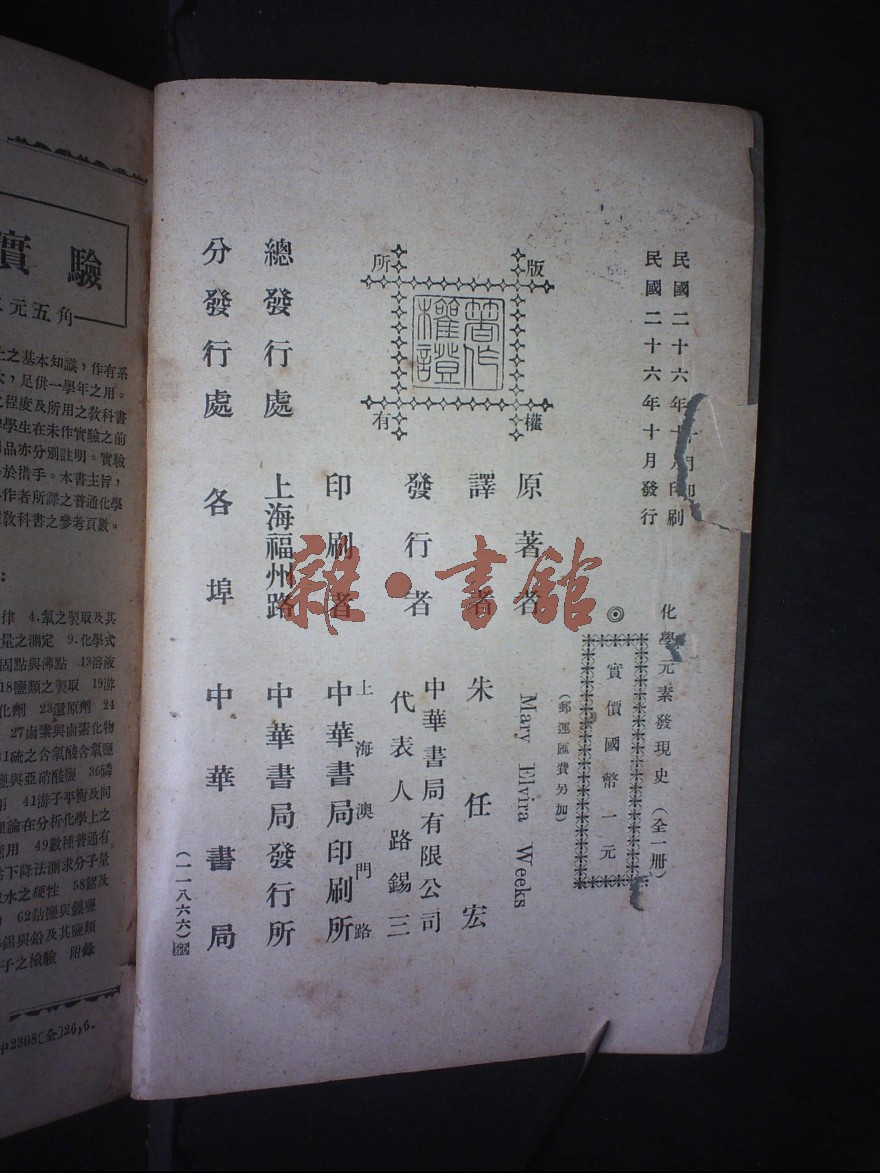 民國二十六年十月印刷
民國二十六年十月發行
化學元素發現史（全一冊）
◎
實價國幣一元
（郵運匯費另加）
版權所有
著作權證
原著者 Mary Elvira Weeks
譯者 朱任宏
發行者 中華書局有限公司
代表人路錫三
印刷者 上海澳門路
中華書局印刷所
總發行處 上海福州路 中華書局發行所
分發行處 各埠中華書局
（一一八六六）
雜·書館
實驗
元五角
之基本知識，作有系
，足供一學年之用。
之程度及所用之教科書
學生在未作實驗之前
品亦分別註明。實驗
於措手。本書主旨，
作者所譯之普通化學
教科書之參考頁數。
：
律 4.氧之製取及其
量之測定 9.化學式
固點與沸點 13溶液
18鹽類之製取 19游
化劑 23還原劑 24
27鹵素與鹵素化物
31硫之含氧酸含氧鹽
鹽與亞硝酸鹽 36磷
用 41游子平衡及同
理論在分析化學上之
應用 49數種普通有
點下降法測求分子量
水之硬性 58鋁及
62鈷鹽與鎳鹽
錫與鉛及其鹽類
子之檢驗 附錄
中2308(全)26,6.